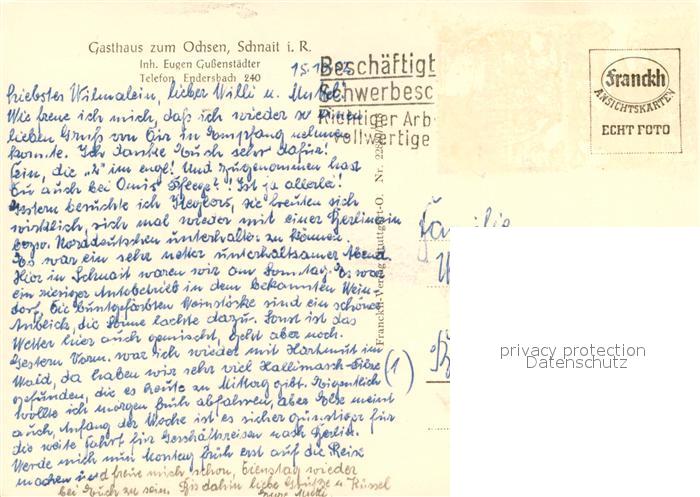 Gasthaus zum Ochsen, Schnait i. R.
Inh. Eugen Gußenstädter
Telefon Endersbach 240
Beschäftigt
Schwerbesc
Richtiger Arb
vollwertige
Franckh
ANSICHTSKARTEN
ECHT FOTO
Franckh-Verlag Stuttgart-O. Nr.
Liebstes Wilmalein, lieber Willi u.
Wie freue ich mich, daß ich wieder so einen
lieben Gruß von Dir in Empfang nehmen
konnte. Ich danke Euch sehr dafür!
Ein, die "2" im engl! Und zugenommen hast
Du auch bei Omis Pflege! Ist ja allerlei!
Gestern besuchte ich Keglers, sie freuten sich
wirklich, sich mal wieder mit einer Berlinerin
bezw. Norddeutschen unterhalten zu können.
Es war ein sehr netter unterhaltsamer Abend.
Hier in Schnait waren wir am Sonntag. Es war
ein riesiger Autobetrieb in dem bekannten Wein-
dorf. Die buntgefärbten Weinstöcke sind ein schöner
Anblick, die Sonne lachte dazu. Sonst ist das
Wetter hier auch gemischt, geht aber noch.
Gestern Vorm. war ich wieder mit Hartmut im
Wald, da haben wir sehr viel Hallimasch-Pilze
gefunden, die es heute zu Mittag gibt. Eigentlich
wollte ich morgen früh abfahren, aber meint
auch, Anfang der Woche ist es sicher günstiger für
die weite Fahrt für Geschäftsreisen nach Berlin.
Werde mich nun Montag früh erst auf die Reise
machen und freue mich schon, Dienstag wieder
bei Euch zu sein. Bis dahin liebe Grüße u. Küssel
Eure
(1)
Familie
privacy protection
Datenschutz